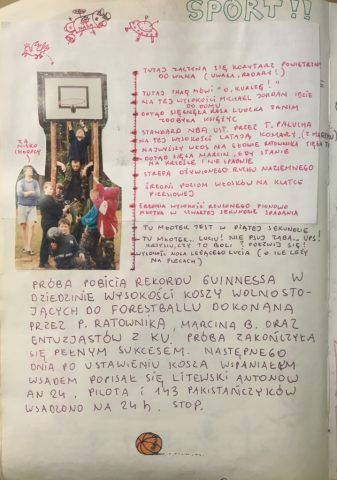 SPORT!!
TUTAJ ZACZYNA SIĘ KORYTARZ POWIETRZNY
DO WILNA (UWAGA, RADARY!)
TUTAJ SHAQ MÓWI "O, KURCZĘ!"
NA TEJ WYSOKOŚCI MICHAEL JORDAN IDZIE
DO DOMU
DOTĄD SIĘGNĘŁA NOGA LUDZKA ZANIM
ZDOBYŁA KSIĘŻYC
STANDARD NBA UST. PRZEZ T. PALUCHA
NA TEJ WYSOKOŚCI LATAJĄ KOMARY (Z MARCINU)
NAJWYŻSZY WŁOS NA GŁOWIE RATOWNIKA SIĘGA TU
DOTĄD SIĘGA MARCIN, GDY STANIE
NA KRZEŚLE I NIE SPADNIE
STREFA OŻYWIONEGO RUCHU NAZIEMNEGO
ŚREDNI POZIOM WŁOSKÓW NA KLATCE
PIERSIOWEJ
ŚREDNIA WYSOKOŚĆ RZUCONEGO PIONOWO
MŁOTKA W CZWARTEJ SEKUNDZIE SPADANIA
TU MŁOTEK JEST W PIĄTEJ SEKUNDZIE
TU MŁOTEK.. LUCU! NIE PLUJ ŻABĄ.. UPS!
KRZYSIU, CZY TO BOLI? POŁÓWIJ SIĘ!
WYSOKOŚĆ NOSA LEŻĄCEGO LUCIA (O ILE LEŻY
NA PLECACH)
ZA
NISKO
CHŁOPCY
PRÓBA POBICIA REKORDU GUINNESSA W
DZIEDZINIE WYSOKOŚCI KOSZY WOLNOSTO-
JĄCYCH DO FORESTBALLU DOKONANA
PRZEZ P. RATOWNIKA, MARCINA B. ORAZ
ENTUZJASTÓW Z KU. PRÓBA ZAKOŃCZYŁA
SIĘ PEŁNYM SUKCESEM. NASTĘPNEGO
DNIA PO USTAWIENIU KOSZA WSPANIAŁYM
WSADEM POPISAŁ SIĘ LITEWSKI ANTONOW
AN 24. PILOTA I 143 PAKISTAŃCZYKÓW
WSADZONO NA 24 h. STOP.